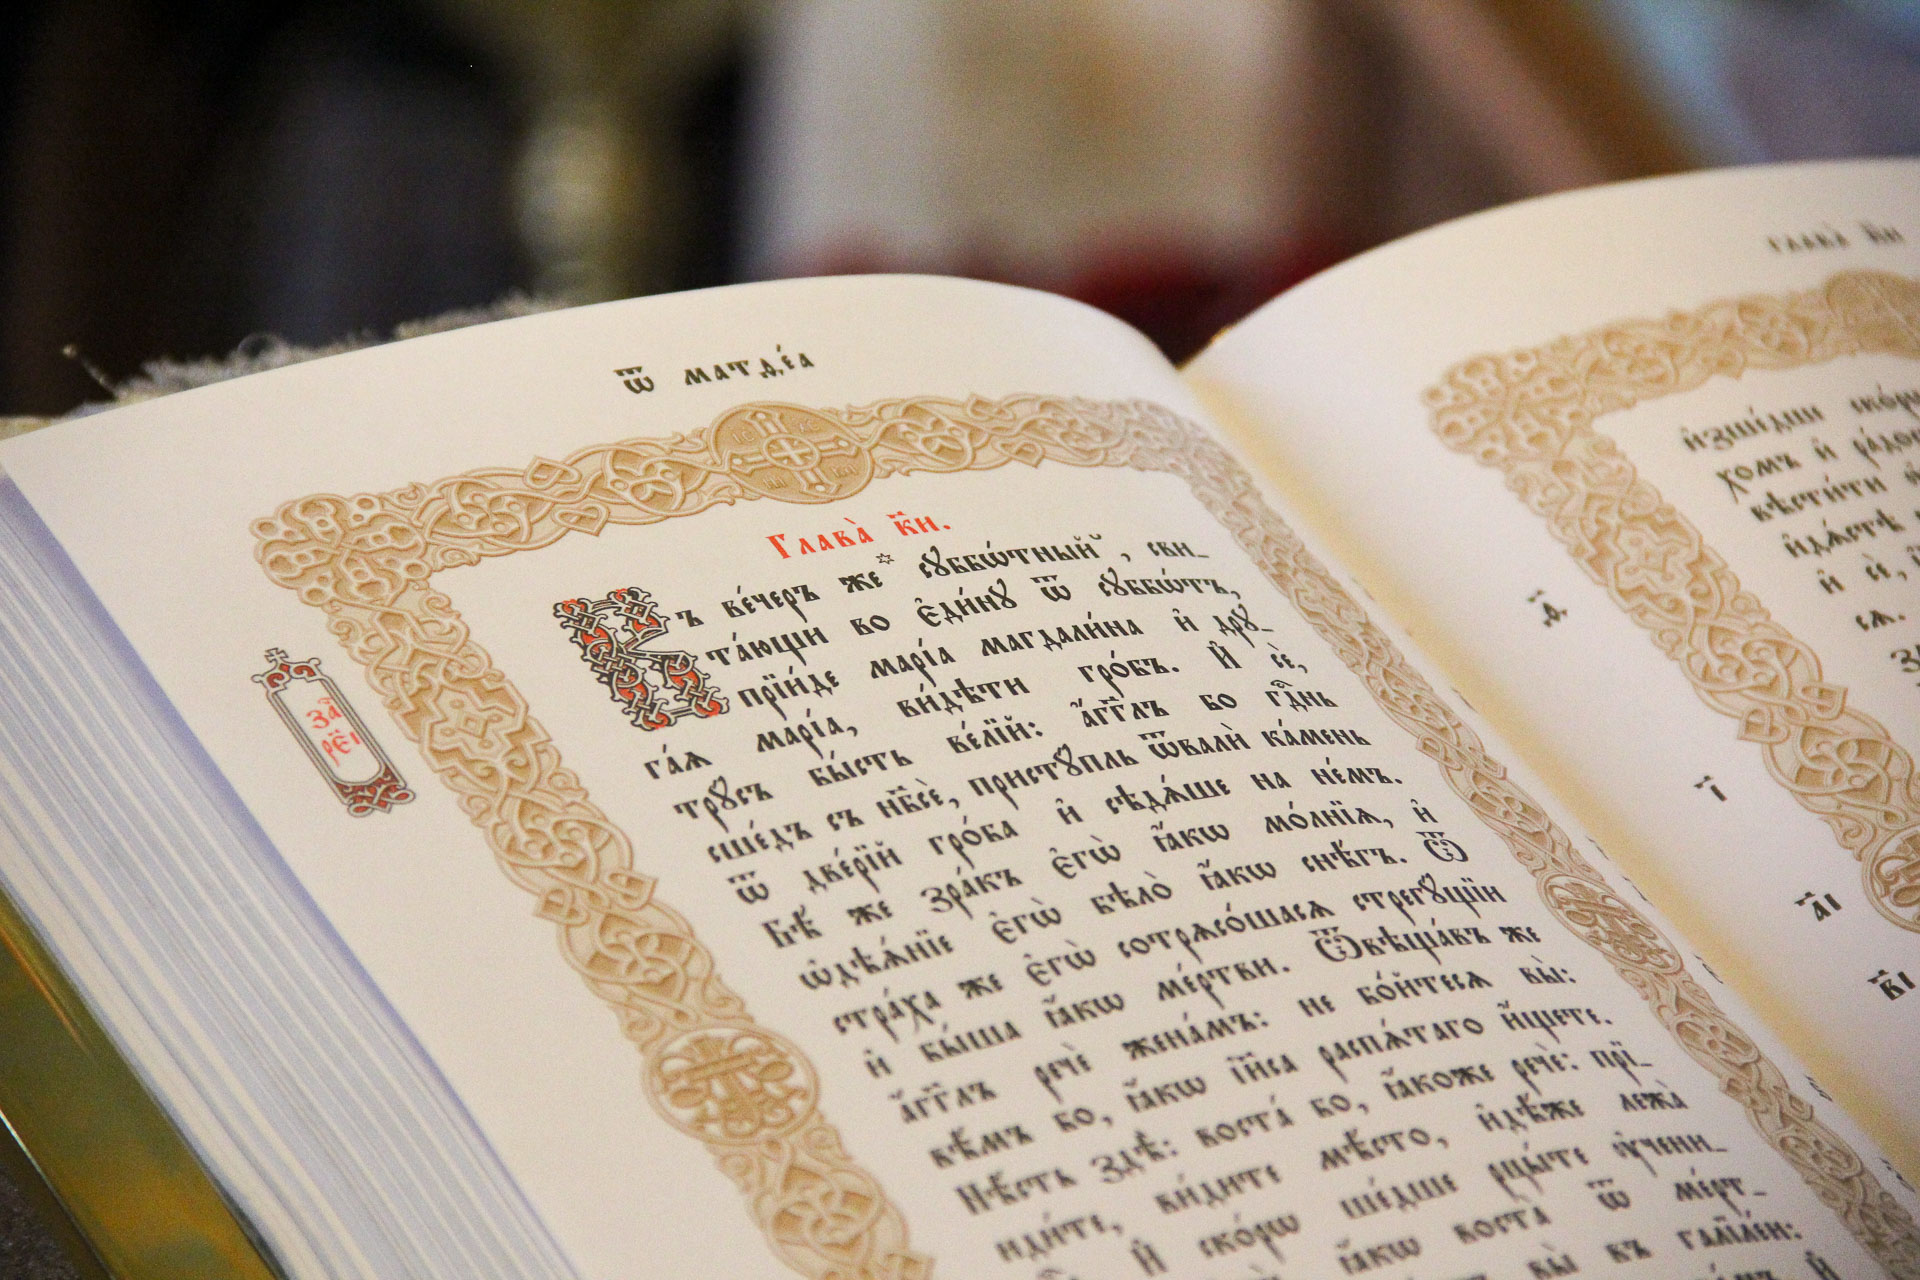 Ѿ МАТѲЕ́А
Глава̀ к҃и.
Въ ве́черъ же сꙋббѡ́тный, сви_
та́ющи во є҆ди́нꙋ ѿ сꙋббѡ́тъ,
прїи́де марі́а магдали́на и҆ дрꙋ_
га́ѧ марі́а, ви́дѣти гро́бъ. И҆ сѐ,
трꙋ́съ бы́сть ве́лїй: а҆́гг҃лъ бо гдⷭ҇нь
сше́дъ съ нб҃сѐ, пристꙋ́пль ѿвалѝ ка́мень
ѿ две́рїй гро́ба и҆ сѣдѧ́ше на не́мъ.
Бѣ́ же зра́къ є҆гѡ̀ ꙗ҆́кѡ мо́лнїѧ, и҆
ѡ҆дѣѧ́нїе є҆гѡ̀ бѣло̀ ꙗ҆́кѡ снѣ́гъ. Ѿ
стра́ха же є҆гѡ̀ сотрѧсо́шасѧ стрегꙋ́щїи
и҆ бы́ша ꙗ҆́кѡ ме́ртви. Ѿвѣща́въ же
а҆́гг҃лъ речѐ жена́мъ: не бо́йтесѧ вы̀:
вѣ́мъ бо, ꙗ҆́кѡ і҆и҃са распѧ́таго и҆́щете.
Нѣ́сть здѣ̀: воста́ бо, ꙗ҆́коже речѐ: прї_
иди́те, ви́дите мѣ́сто, и҆дѣ́же лежа̀
И҆ ско́рѡ ше́дше рцы́те ᲂу҆чени_
ꙗ҆́кѡ воста̀ ѿ ме́рт_
вы̀ въ галїле́и:
за҄
рє҃і
Глава̀ к҃и
и҆зше́дши ско́рѡ
хомъ и҆ ра́дос
вѣсти́ти
и҆дѧ́стѣ
и҆ сѐ, і҆
сѧ.
д҃.
і҃
а҃і
в҃і